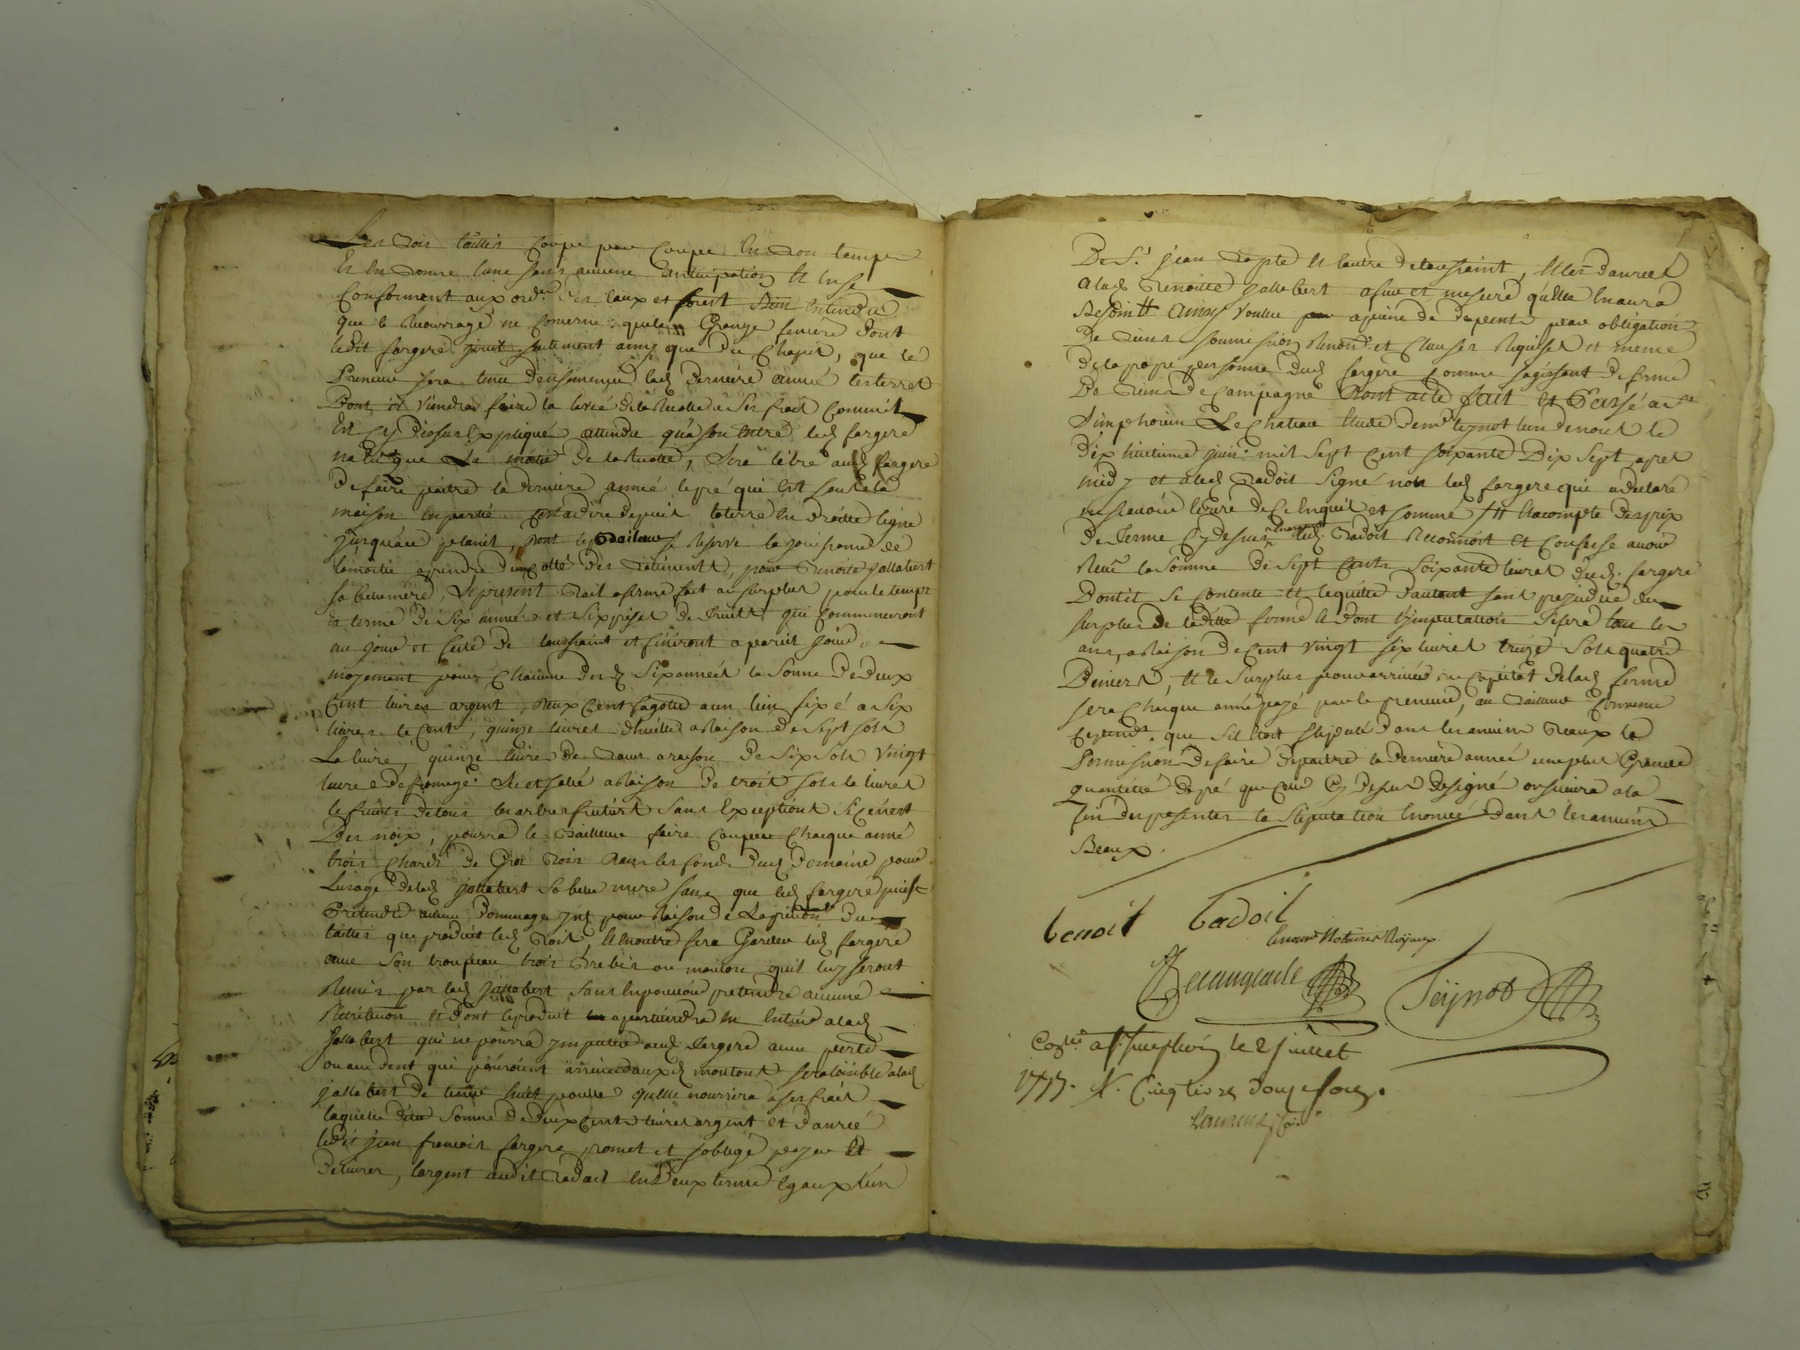 Les Bois taillis coupe pour coupe En Bon temps
Et En Bonne lune sans aucune anticipation Et En se
Conforment aux ord.ces Des Eaux et forest Bien Entendu
que le
ledit fargere jouit seulement ainsy que Du Chapit, que le
Preneur sera tenu D'ensemencer lad. Derniere année les terres
Dont il viendra faire la levée De la Recolte a ses frais Comme
Est Cy Dessus Expliqué attendu qu'a son Entrée led. fargere
n'a Eu que La moitié De la Recolte, sera libre aud. fargere
De faire paitre la Derniere année le pré qui Est sous la
maison En partie C'est a dire Depuis la terre En Droitte ligne
jusqu'au, Dont le Bailleur se Reserve la jouissance De
la moitié a prendre Du Cotté Des Batiments, pour Benoite jallabert
sa belle mere, Le present Bail a ferme fait au surplus pour le temps
Et terme De six années et six prises De fruits qui Commenceront
au jour et feste De toussaint et finiront a pareil jour
moyennant pour Chacune Desd. six années la somme De Deux
Cent livres argent, Deux Cent fagots a un lien fixé a six
livres le Cent, quinze livres D'huille a Raison De sept sols
La livre, quinze livres De Beurre a raison De six sols vingt
livres De fromage sec et salé a Raison De trois sols la livre
les fruits De tous les arbres fruitiers sans Exception si ce n'est
Des noix, pourra le Bailleur faire Couper Chaque année
trois Chards De Gros Bois Dans les fonds Dud. Domaine pour
L'usage De lad. jallabert sa belle mere sans que led. fargere puisse
Pretendre aucun Dommage
taillis que produit led. Bois, En outre sera Garder led. fargere
avec son troupeau trois Brebis ou mouton qu'il luy seront
Remis par lad. jallabert sans En pouvoir pretendre aucune
Retribution Et Dont le produit apartiendra En Entier a lad.
jallabert qui ne pourra imputer aud. fargere aucune perte
ou accident qui pouroient arriver auxd. moutons sera loisible a lad.
jallabert De tenir huit poulles qu'elle nourrira a ses frais
laquelle Ditte somme De Deux Cents livres argent et Danrée
ledit jean francois fargere promet et s'oblige payer Et
Delivrer, l'argent audit Badoil En Deux terme Egaux l'un
De St jean Bapte Et l'autre De toussaint, Et les Danrées
a lad. Benoitte jallabert a fur et mesure qu'elle En aura
Besoin Ainsy voulu a peine De Depents pour obligation
De Biens soumission Renon.on et Clauses Requises et meme
De la propre personne Dud. fargere Comme s'agissant De ferme
De Biens De Campagne Dont acte fait Et Passé a St
Simphorien Le Chateau Etude De m.e teynot l'un De nous le
Dix huitieme juin mil sept Cent soixante Dix sept apres
midy et a led. Badoil signé non led. fargere qui a Declaré
ne scavoir Ecrire De Ce Enquis et sommé Et a compte Des prix
De ferme Cy Dessus led. Badoil Reconnoit Et Confesse avoir
Reçu la somme De sept Cents soixante livres Dud. fargere
Dont il se contente Et le quitte D'autant sans prejudice Du
surplus De laditte ferme Et Dont l'imputation se fera tous les
ans, a Raison De Cent vingt six livres treize sols quatre
Deniers, Et le surplus pour arriver au Capital De lad. ferme
sera Chaque année payé par le Preneur, au Bailleur Convenu
Cependt. que s'il Etoit stipulé Dans les anciens Beaux la
Permission De faire Depaitre la Derniere année une plus Grande
quantité De pré que Celui Cy Dessus Designé on suivra a la
fin Des presentes la stipulation Enoncée Dans les anciens
Beaux.
benoit badoil
Notaires Royaux
Teÿnot
Con.lé a St simphorien le 2 juillet
1777. R. Cinq livres Douze sous.